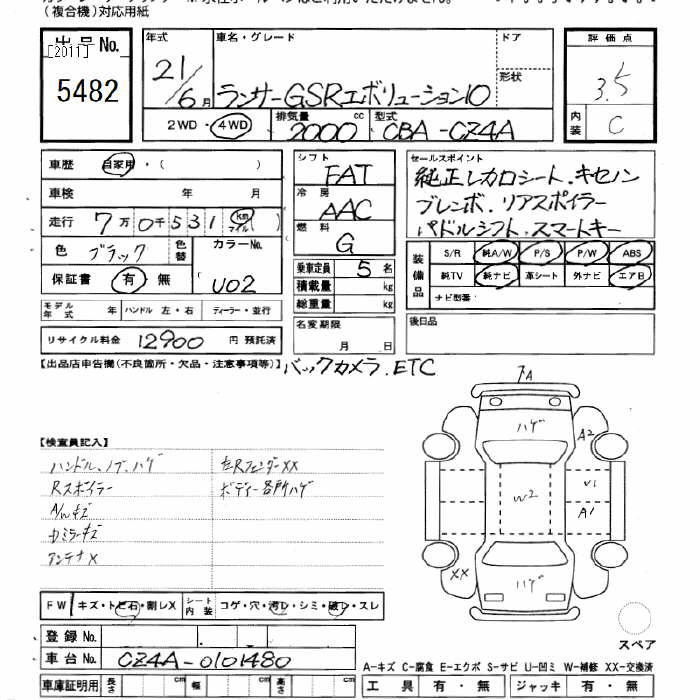 （複合機）対応用紙
出品No.
[2011]
5482
年式 21/6月
車名・グレード
ランサーGSRエボリューション10
ドア
形状
評価点
3.5
内装 C
2WD・4WD
排気量 2000 cc
型式 CBA-CZ4A
車歴 自家用・（ ）
車検 年 月
走行 7万0千531 km マイル
色 ブラック
色替
カラーNo. U02
保証書 有・無
モデル年式 年 ハンドル 左・右 ディーラー・並行
リサイクル料金 12900 円 預託済
シフト FAT
冷房 AAC
燃料 G
乗車定員 5 名
積載量 kg
総重量 kg
名変期限
月 日
セールスポイント
純正レカロシート．キセノン
ブレンボ．リアスポイラー
パドルシフト．スマートキー
装備品
S/R 純A/W P/S P/W ABS
純TV 純ナビ 革シート 外ナビ エアB
ナビ型番：
後日品
【出品店申告欄(不良箇所・欠品・注意事項等)】
バックカメラ．ETC
【検査員記入】
ハンドル、ノブ、ハゲ
左Rフェンダー XX
Rスポイラー
ボディー各所ハゲ
A/Wキズ
ミラーキズ
アンテナX
FW キズ・トビ石・割レX
シート内装 コゲ・穴・汚レ・シミ・破レ・スレ
登録No.
車台No. CZ4A-0101480
車庫証明用 長さ cm 幅 cm 高さ cm
A
ハゲ
A2
W2
A1
XX
ハゲ
スペア
A-キズ C-腐食 E-エクボ S-サビ U-凹ミ W-補修 XX-交換済
工具 有・無 ジャッキ 有・無